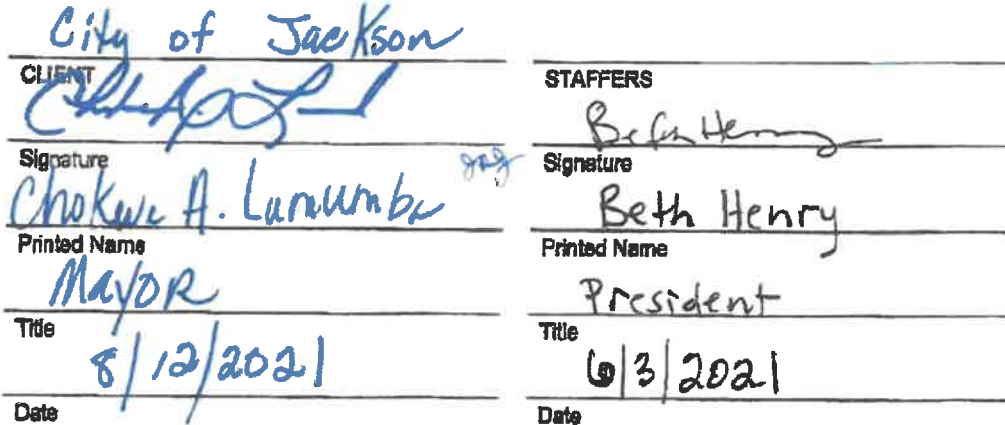 City of Jackson
CLIENT
Signature
Chokwe A. Lumumba
Printed Name
Mayor
Title
8/12/2021
Date
STAFFERS
Beth Henry
Signature
Beth Henry
Printed Name
President
Title
6/3/2021
Date